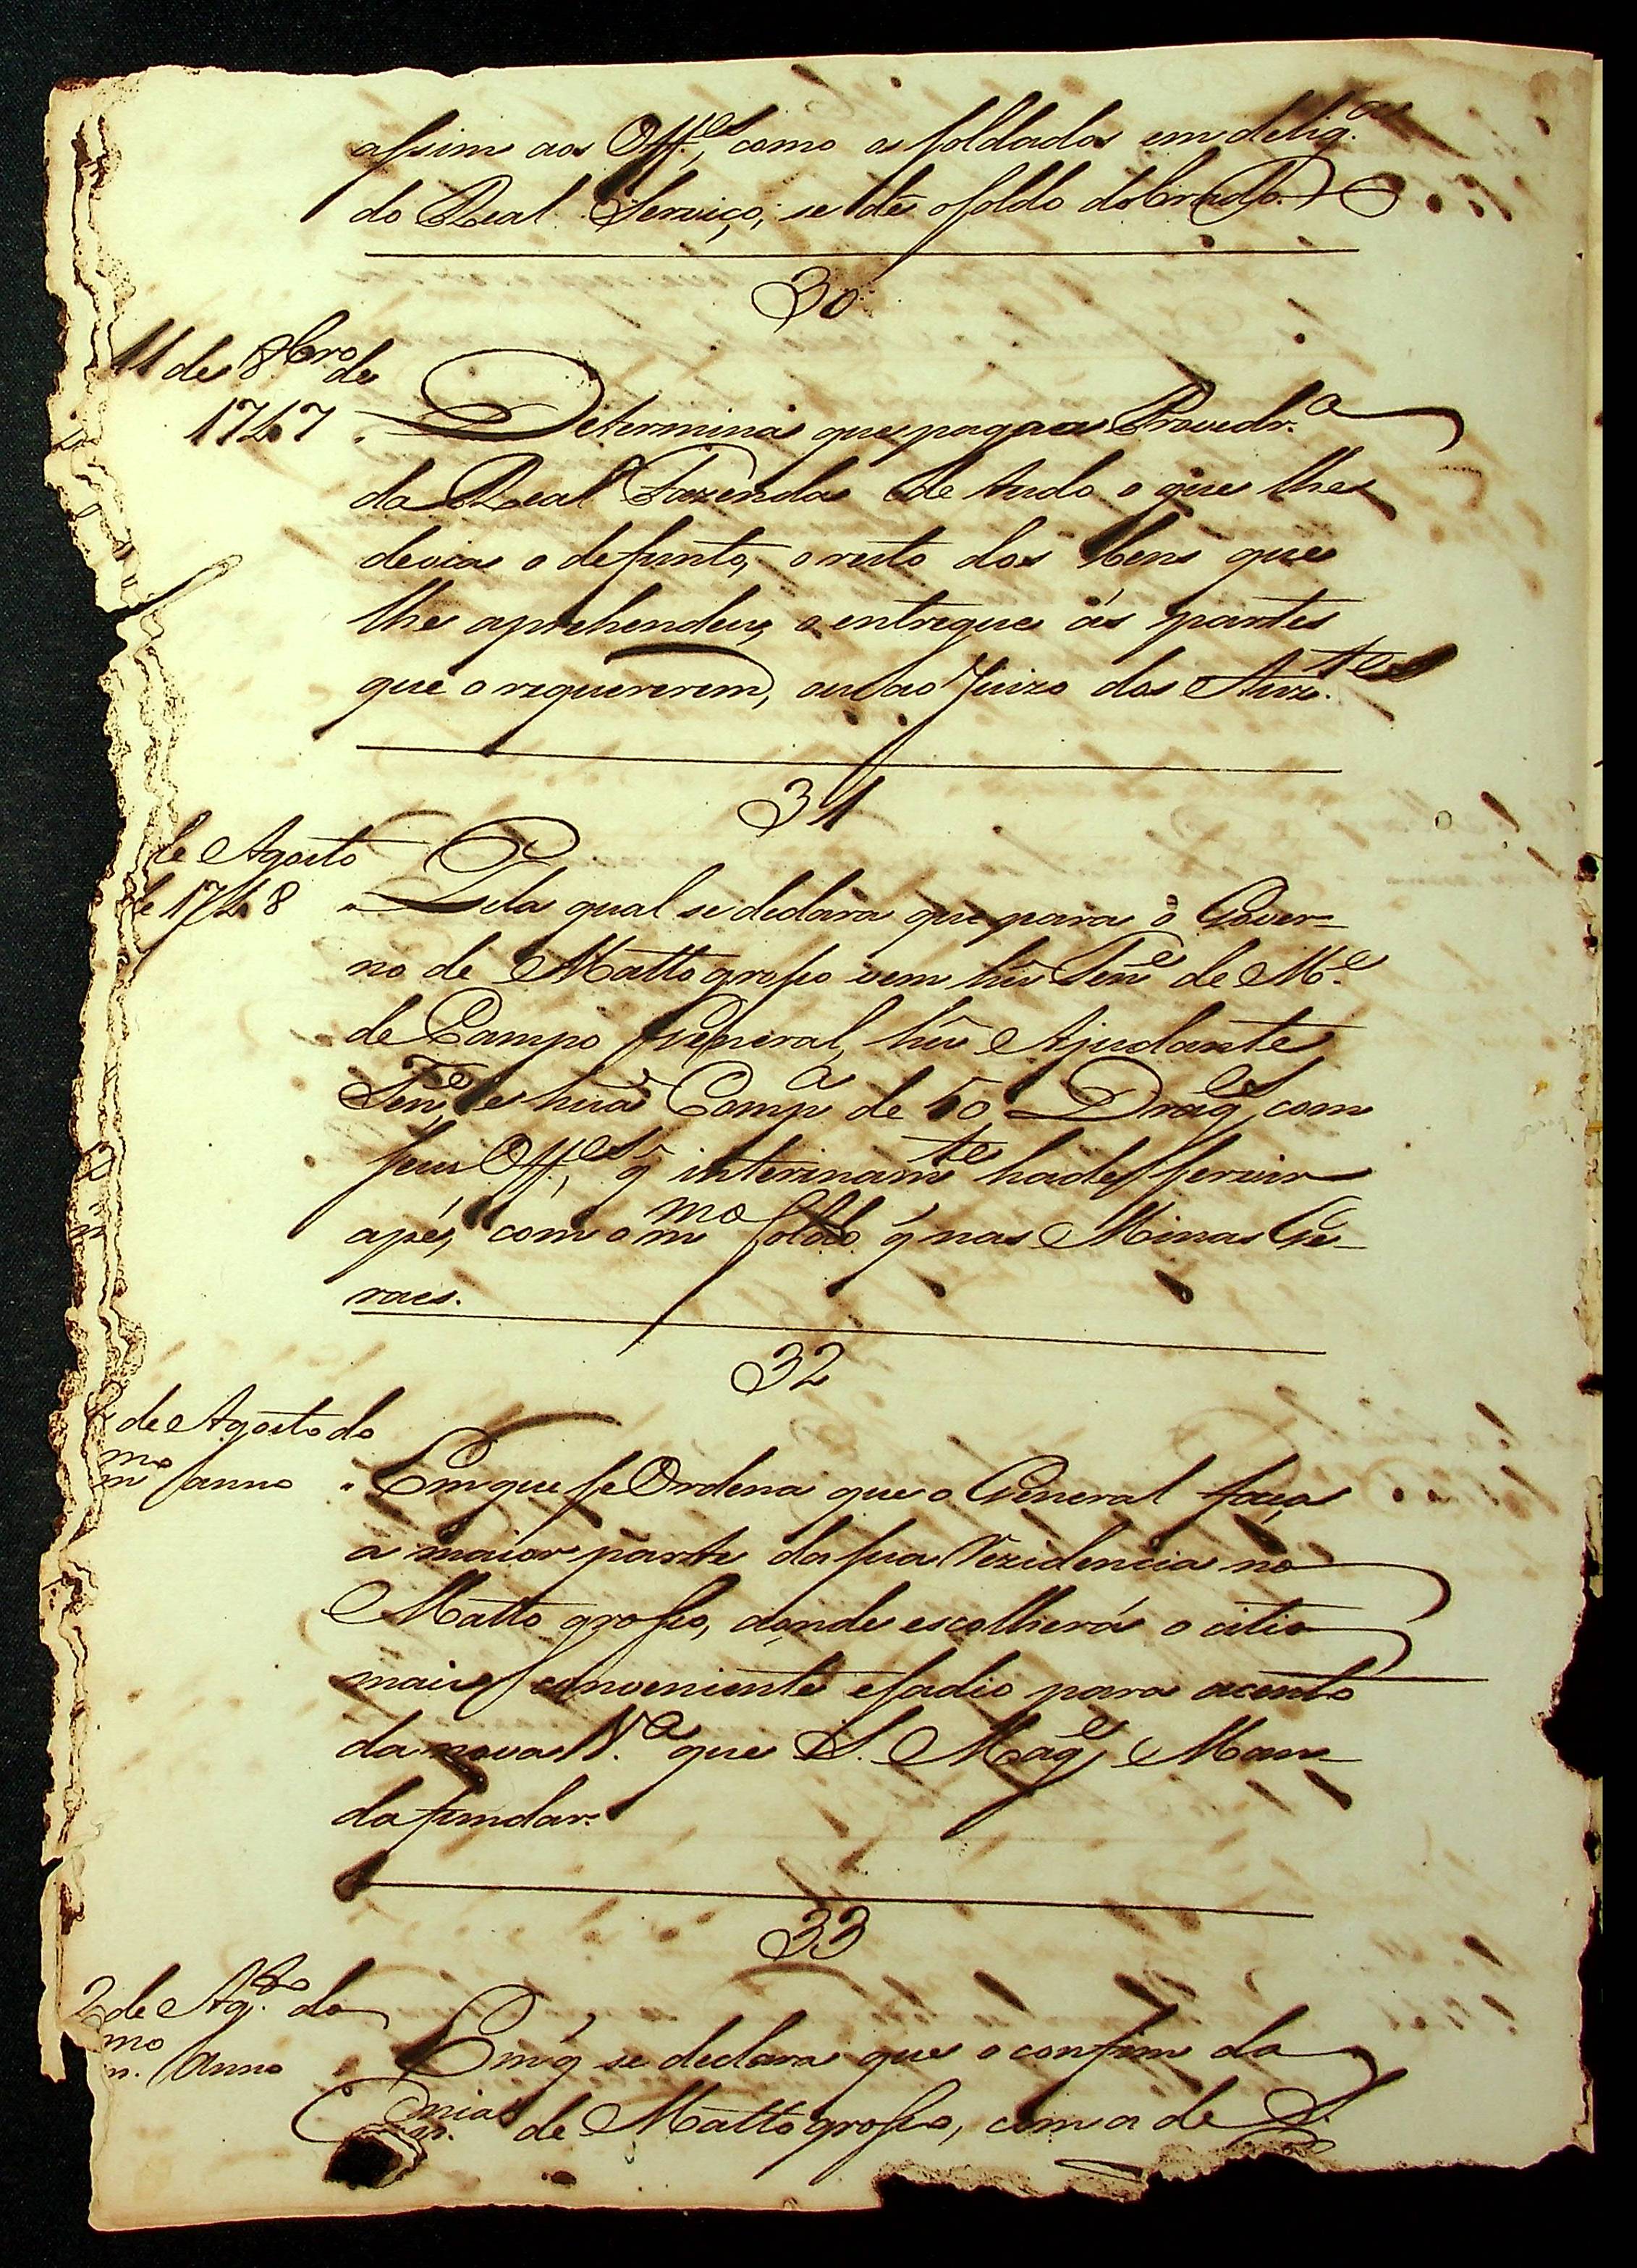 assim aos Off.es, como os soldados em delig.as
do Real Serviço, se dê o soldo dobrado.
30
11 de 8bro de
1747
Determina que paga a Provedr.a
da Real Fazenda de tudo o que lhe
devia o defunto, o resto dos bens que
lhe aprehendeu, o entregue ás partes
que o requererem, ou ao Juizo dos Auz.tes
31
de Agosto
de 1748
Pela qual se declara que para o Gover-
no de Matto grosso vem hũ Ten.e de M.e
de Campo General, hũ Ajudante
Ten.e e hũa Comp.a de 50 Drag.es, com
seus Off.es, q̃ interinam.te hade servir
apé, com o m.mo soldo q̃ nas Minas Ge-
raes.
32
de Agosto do
m.mo anno
Em que se Ordena que o General faça
a maior parte da sua rezidencia no
Matto grosso, aonde escolherá o citio
mais conveniente e sadio para acento
da nova V.a que S. Mag.e Man-
da fundar.
33
2 de Ag.to do
m.mo anno
Em q̃ se declara que o confim da
Cap.nia de Matto grosso, com a de S.